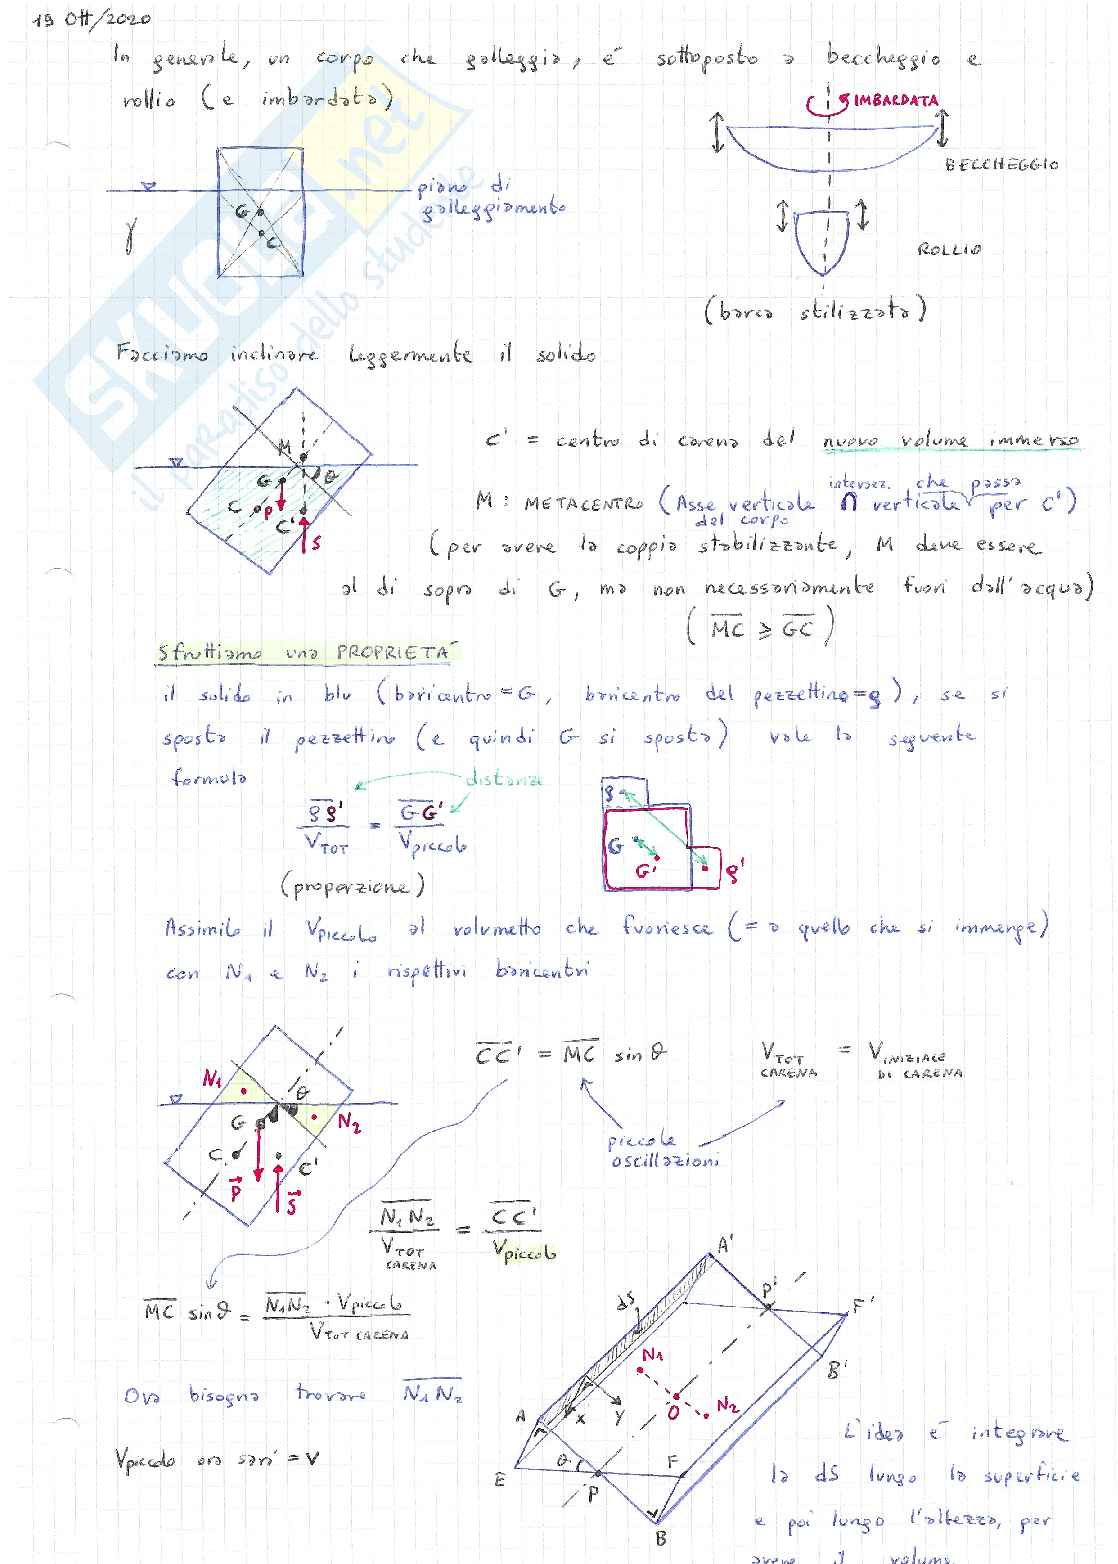 19 Ott/2020
In generale, un corpo che galleggia, é sottoposto a beccheggio e
rollio (e imbardata)
IMBARDATA
BECCHEGGIO
piano di
galleggiamento
G
C
γ
ROLLIO
(barca stilizzata)
Facciamo inclinare leggermente il solido
M
G
θ
C
P
C'
S
C' = centro di carena del nuovo volume immerso
M: METACENTRO (Asse verticale del corpo ∩ intersez. verticale che passa per C')
(per avere la coppia stabilizzante, M deve essere
al di sopra di G, ma non necessariamente fuori dall'acqua)
(MC ⩾ GC)
Sfruttiamo una PROPRIETÁ
il solido in blu (baricentro=G, baricentro del pezzettino=g), se si
sposta il pezzettino (e quindi G si sposta) vale la seguente
formula
distanze
gg'/VTOT = GG'/Vpiccolo
(proporzione)
g
G
G'
g'
Assimilo il Vpiccolo al volumetto che fuoriesce (= a quello che si immerge)
con N1 e N2 i rispettivi baricentri
N1
θ
G
N2
C
C'
P
S
CC' = MC sinθ
VTOT CARENA = VINIZIALE DI CARENA
piccole
oscillazioni
N1N2/VTOT CARENA = CC'/Vpiccolo
MC sinθ = N1N2 · Vpiccolo/VTOT CARENA
Ora bisogna trovare N1N2
Vpiccolo ora sará = V
A'
P'
F'
dS
B'
N1
O
N2
A
x
y
E
θ
P
F
B
L'idea é integrare
la dS lungo la superficie
e poi lungo l'altezza, per
avere il volume
skuola.net
il paradiso dello studente